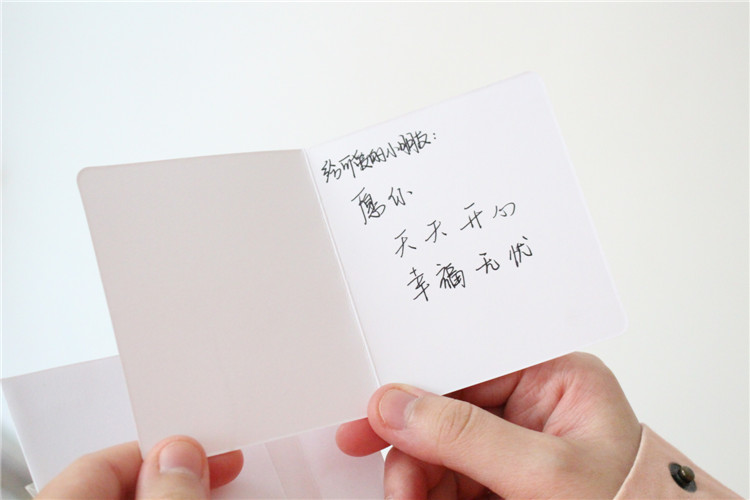 给可爱的小朋友：
愿你
天天开心
幸福无忧